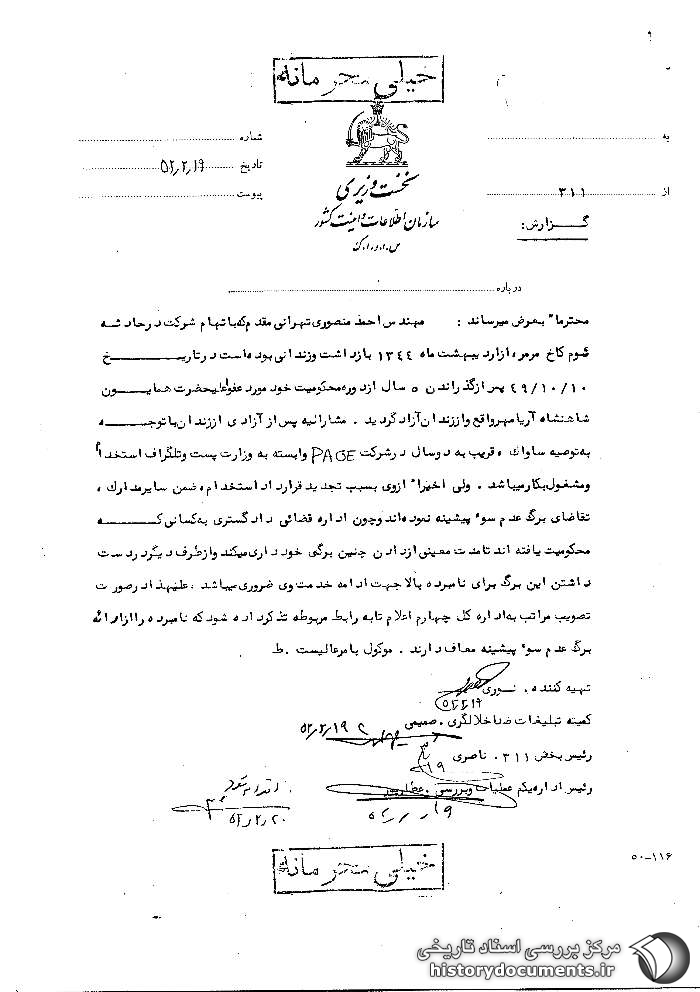 خیلی محرمانه
به
شماره
تاریخ ۵۲/۲/۱۹
پیوست
نخست وزیری
سازمان اطلاعات و امنیت کشور
س.ا.و.ا.ک
از ۳۱۱
گزارش:
درباره
محترماً بعرض میرساند : مهندس احمد منصوری تهرانی مقدم که باتهام شرکت در حادثه
شوم کاخ مرمر، از اردیبهشت ماه ۱۳۴۴ بازداشت و زندانی بوده است در تاریخ
۴۹/۱۰/۱۰ پس از گذراندن ۵ سال از دوره محکومیت خود مورد عفو اعلیحضرت همایون
شاهنشاه آریامهر واقع و از زندان آزاد گردید . مشارالیه پس از آزادی از زندان با توجه
به توصیه ساواک ، قریب به دو سال در شرکت PAGE وابسته به وزارت پست و تلگراف استخدام
و مشغول بکار میباشد . ولی اخیراً از وی بسبب تجدید قرارداد استخدام ، ضمن سایر مدارک ،
تقاضای برگ عدم سوء پیشینه نموده‌اند و چون اداره قضائی دادگستری به کسانی که
محکومیت یافته اند تا مدت معینی از دادن چنین برگی خودداری میکند و از طرف دیگر در دست
داشتن این برگ برای نامبرده بالا جهت ادامه خدمت وی ضروری میباشد ، علیهذا در صورت
تصویب مراتب به اداره کل چهارم اعلام تا به رابط مربوطه تذکر داده شود که نامبرده را از ارائه
برگ عدم سوء پیشینه معاف دارند . موکول بامر عالیست . ط
تهیه کننده . نوری
۵۲/۲/۱۹
کمیته تبلیغات ضد اخلالگری . صمیمی ۵۲/۲/۱۹
رئیس بخش ۳۱۱ . ناصری
۱۹
رئیس اداره یکم عملیات و بررسی . عطارپور
اقدام شود
۵۲/۲/۲۰
خیلی محرمانه
۵۰-۱۱۶
مرکز بررسی اسناد تاریخی
historydocuments.ir